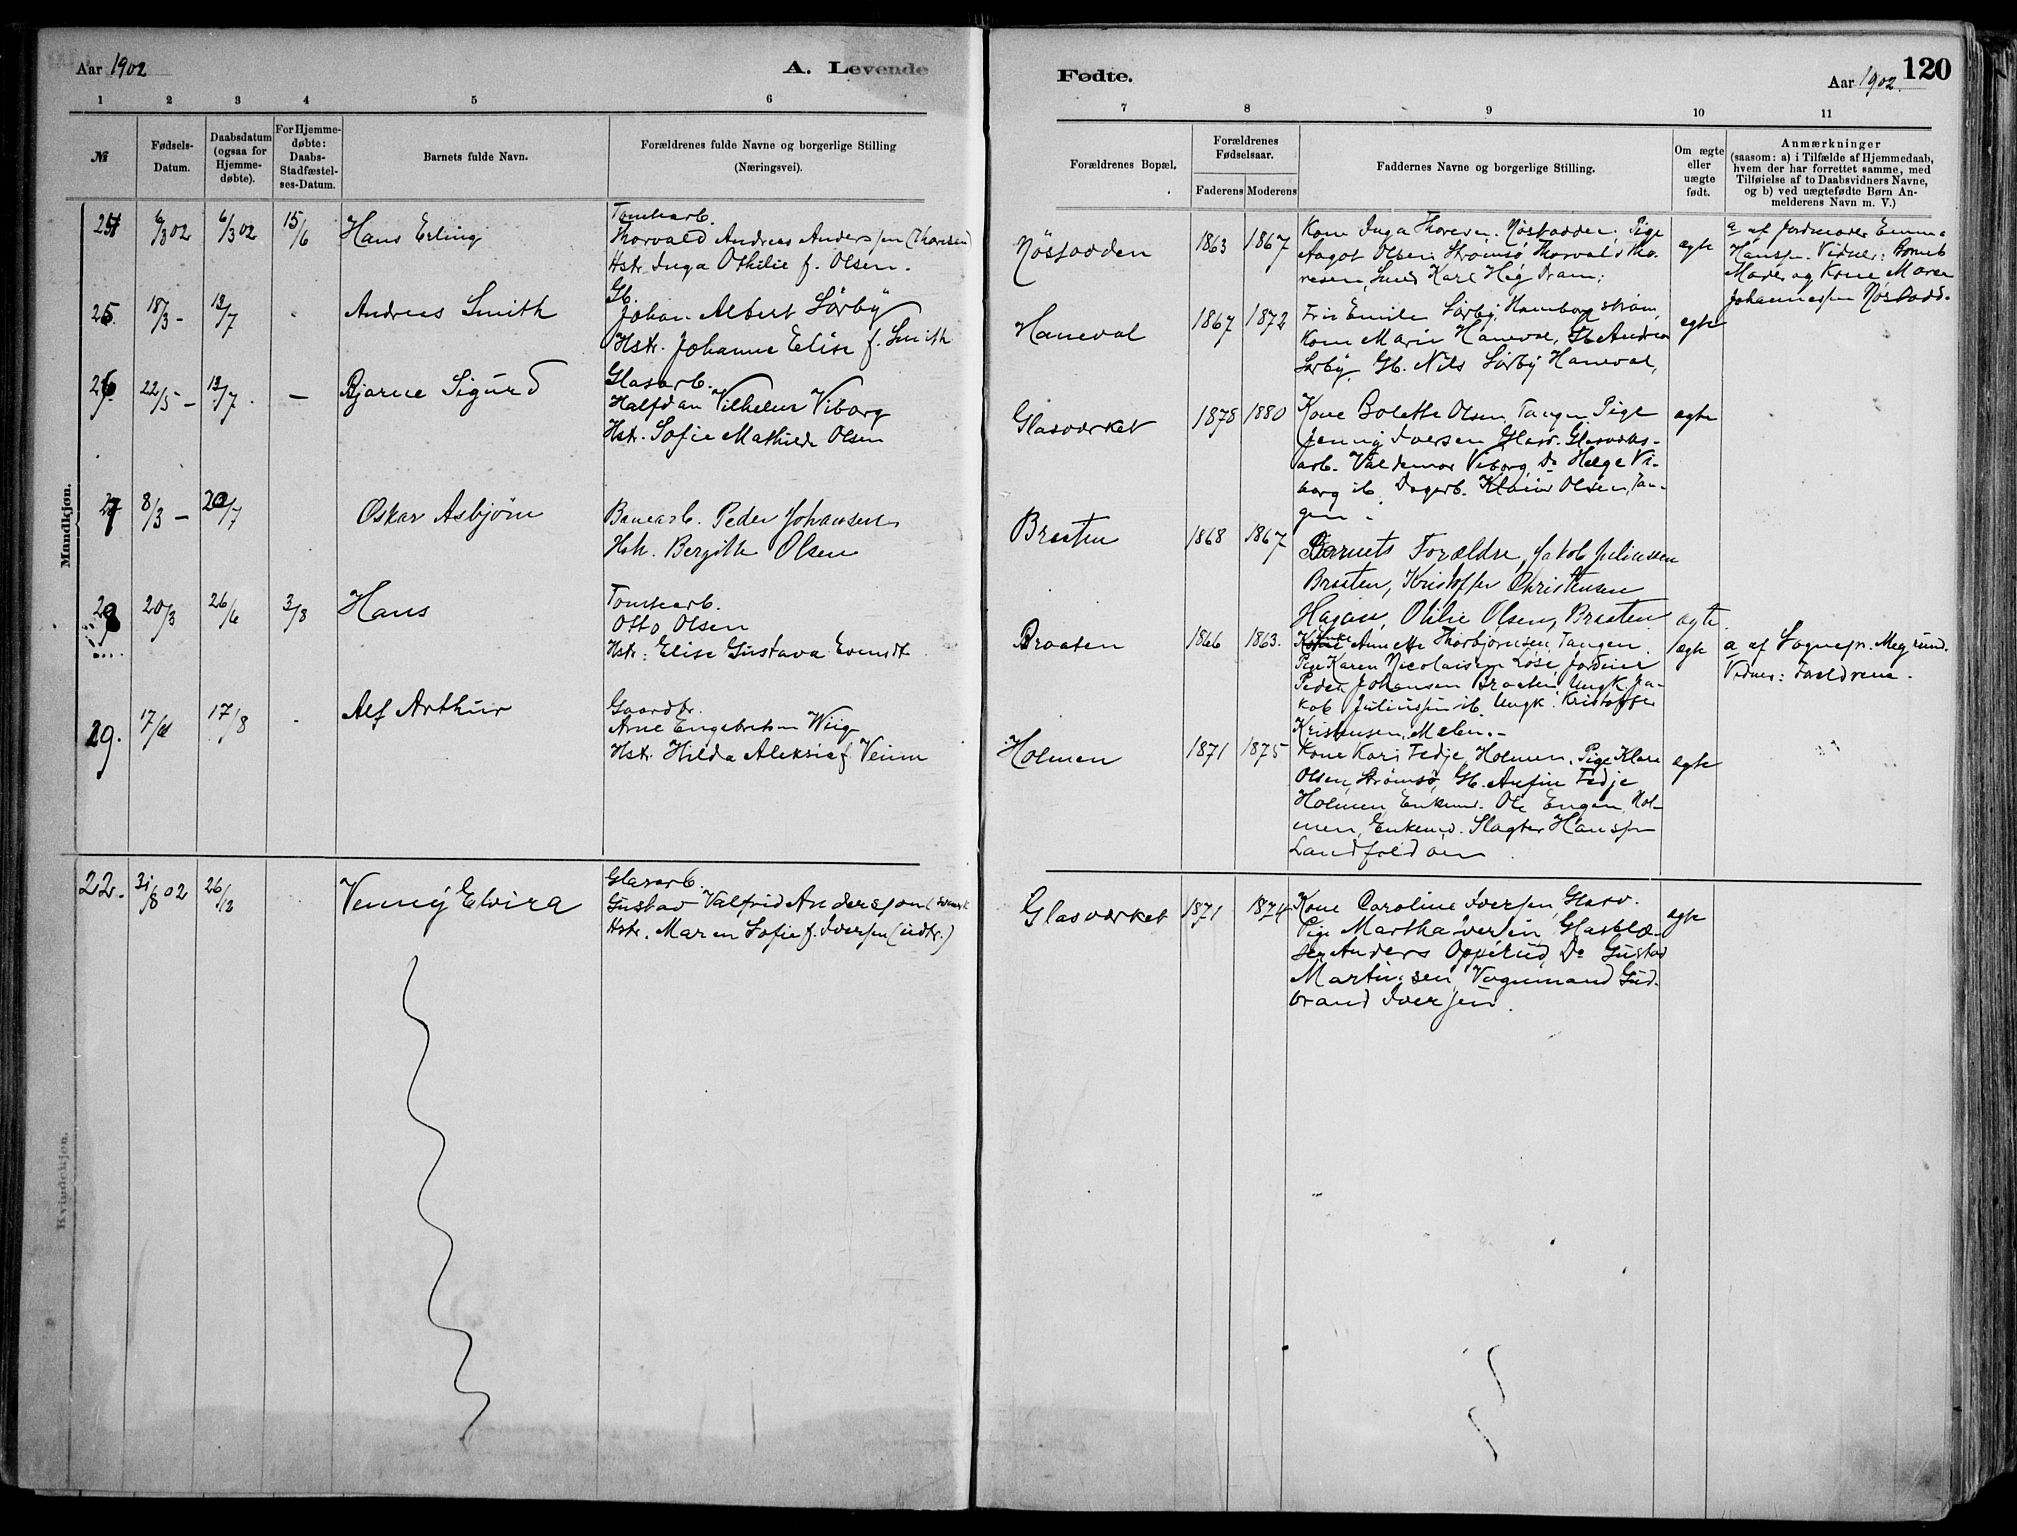 Aar 1902
A. Levende
Fødte.
Aar 1902.
120
1 2 3 4 5 6 7 8 9 10 11
№
Fødsels-Datum.
Daabsdatum (ogsaa for Hjemme-døbte).
For Hjemme-døbte: Daabs-Stadfæstel-ses-Datum.
Barnets fulde Navn.
Forældrenes fulde Navne og borgerlige Stilling
(Næringsvei).
Forældrenes Bopæl.
Forældrenes Fødselsaar.
Faderens Moderens
Faddernes Navne og borgerlige Stilling.
Om ægte eller uægte født.
Anmærkninger
(saasom: a) i Tilfælde af Hjemmedaab,
hvem der har forrettet samme, med
Tilføielse af to Daabsvidners Navne,
og b) ved uægtefødte Børn An-
melderens Navn m. V.)
Mandkjøn.
6/3 02 6/3 02 15/6 Hans Erling
Tomtearb.
Thorvald Andreas Anderssen (Thoresen)
Hstr. Inga Othilie f. Olsen.
Nøstodden 1863 1867
Kone Inga Thoresen, Nøstodden, Pige
Aagot Olsen Strømsø, Thorvald Tho-
resen, Smed Karl Høg Dram:
ægte
a af Jordmoder Emma
Hanssen. Vidner: Barnets
Moder og Kone Maren
Johannessen Nøstodd.
25. 18/3 - 13/7 - Andreas Smith
Gb.
Johan Albert Sørby
Hstr. Johanne Elise f. Smith
Haneval 1867 1872
Frk Emilie Sørby, Hamborgstrøm,
Kone Marie Haneval, Gb. Andreas
Sørby, Gb. Nils Sørby Haneval,
ægte
26. 22/5 - 13/7. - Bjarne Sigurd
Glasarb.
Halfdan Vilhelm Viborg
Hstr. Sofie Mathilde Olsen
Glasværket 1878 1880
Kone Bolette Olsen, Tangen, Pige
Jenny Iversen Glasv. Glasværks-
arb. Valdemar Viborg, Do Helge Vi-
borg ib. Dagarb. Olsen, Tan-
gen.
ægte
27 8/3 - 20/7 Oskar Asbjørn
Banearb. Peder Johansen
Hstr. Bergitte Olsen
Braaten 1868 1867
Barnets Forældre, Jakob Juliussen
Braaten, Kristoffer Christensen
Hagan, Otilie Olsen, Braaten
ægte.
28 20/3 26/6 3/8 Hans
Tomtearb.
Otto Olsen
Hstr: Elise Gustava Evendt
Braaten 1866 1863.
Annette Thorbjørnsen, Tangen,
Pige Karen Nicolaisen Løse
Peder Johansen Braaten, Ungk. Ja-
kob Juliussen ib. Ungk. Kristoffer
Kristensen, Malen. -
ægte
a af Sognepr. Megrund.
Vidner: Forældrene.
29. 17/8 - Alf Arthur
Gaardbr.
Arne Engebretsen Wiig
Hstr. Hilda Aleksia f. Veum
Holmen 1871 1875
Kone Kari Tedje, Holmen, Pige Klara
Olsen, Strømsø, Gb. Anfin Tedje
Holmen, Enkem. Ole Engen, Hol-
men, Enkem. Slagter Hanssen
Landfaldøen.
ægte
Kvindekjøn.
22. 31/8 02 26/12 Venny Elvira
Glasarb.
Gustav Valfrid Anderssen (svensk
Hstr. Maren Sofie f. Iverssen (udtr.)
Glasværket 1871 1874
Kone Caroline Iverssen, Glasv.
Pige Martha Iversen, Glasblæ-
ser Anders Oppelud, Do Gustav
Martinsen, Vognmand Gud-
brand Iverssen.
ægte